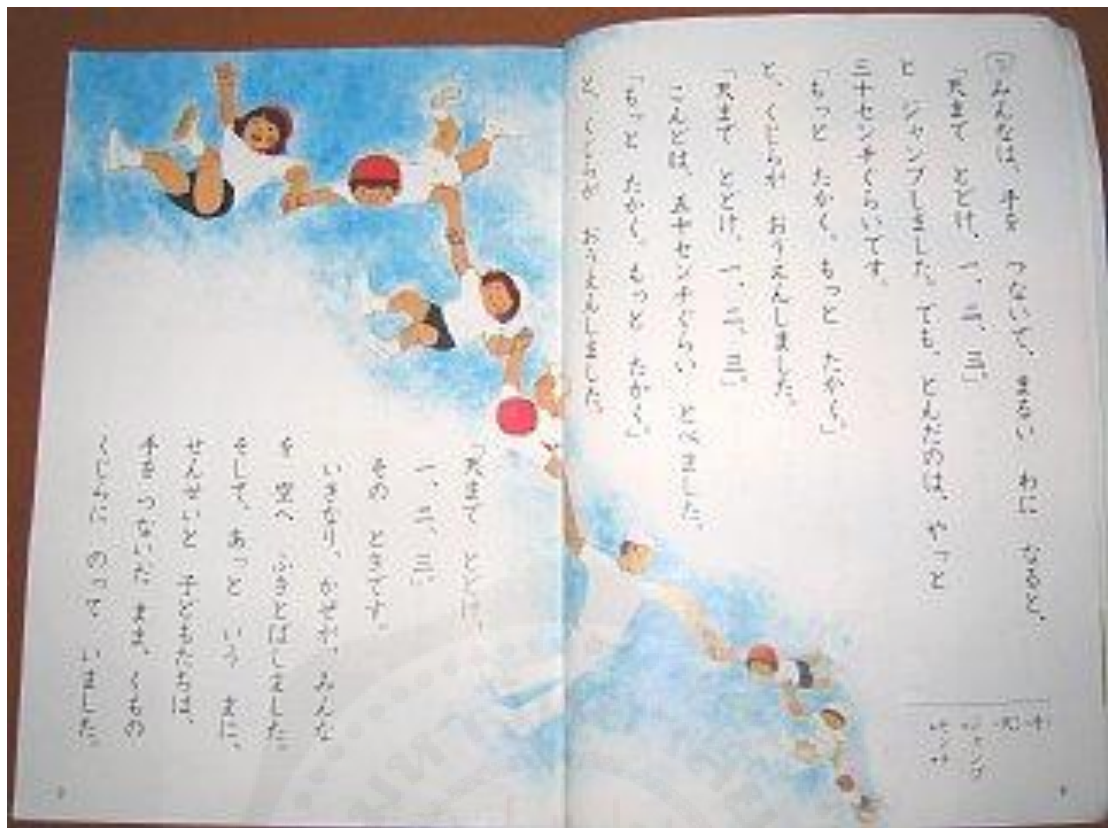 みんなは、手を つないで、まるい わに なると、
「天まで とどけ、一、二、三。」
と ジャンプしました。でも、とんだのは、やっと
三十センチぐらいです。
「もっと たかく、もっと たかく。」
と、くじらが おうえんしました。
「天まで とどけ、一、二、三。」
こんどは、五十センチぐらい とべました。
「もっと たかく、もっと たかく。」
と、くじらが おうえんしました。
「天まで とどけ、
一、二、三。」
その ときです。
いきなり、かぜが、みんな
を 空へ ふきとばしました。
そして、あっと いう まに、
せんせいと 子どもたちは、
手を つないだ まま、くもの
くじらに のって いました。
手
天
ジャンプ
センチ